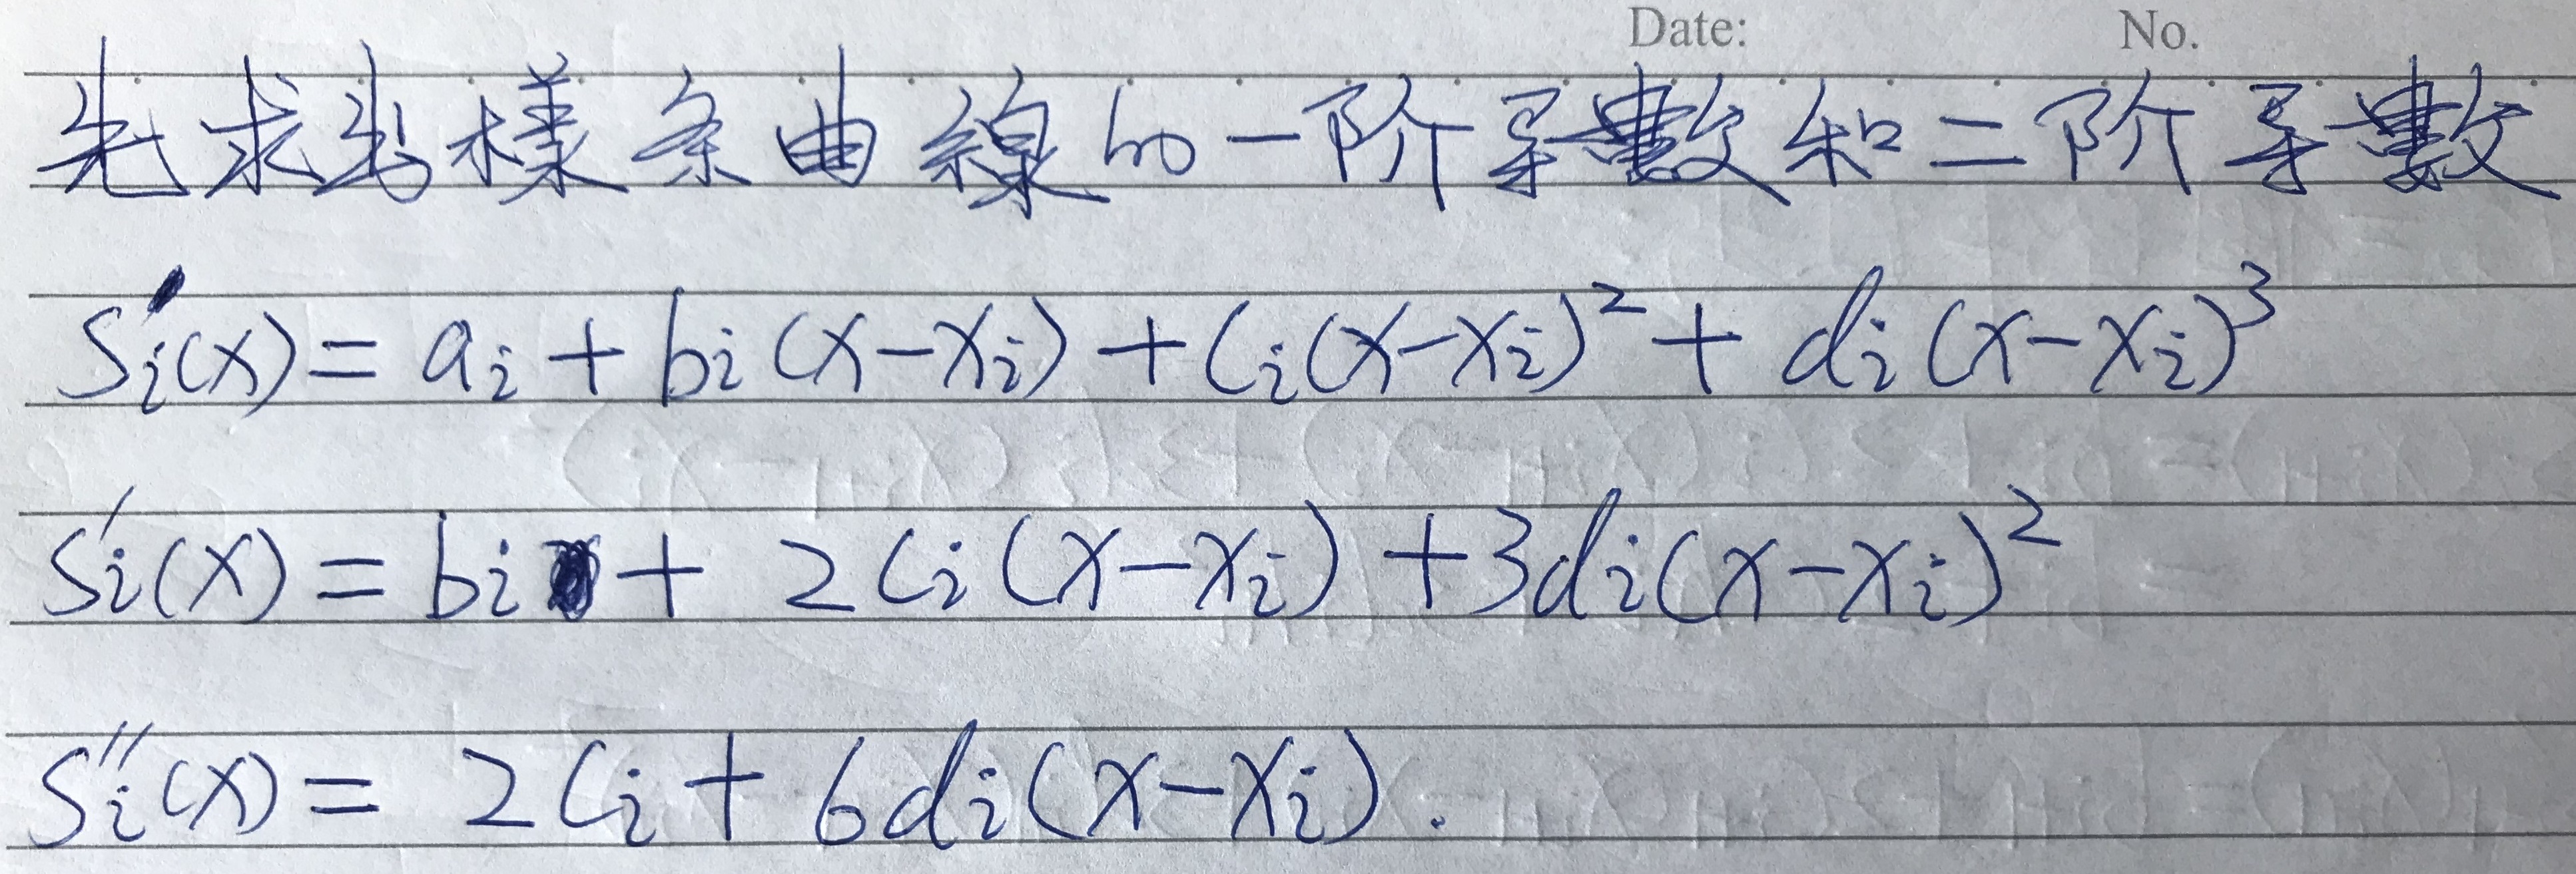 Date: No.
先求出樣条曲線的一阶导數和二阶导數
Sᵢ(x) = aᵢ + bᵢ(x-xᵢ) + cᵢ(x-xᵢ)² + dᵢ(x-xᵢ)³
S'ᵢ(x) = bᵢ + 2cᵢ(x-xᵢ) + 3dᵢ(x-xᵢ)²
S''ᵢ(x) = 2cᵢ + 6dᵢ(x-xᵢ).